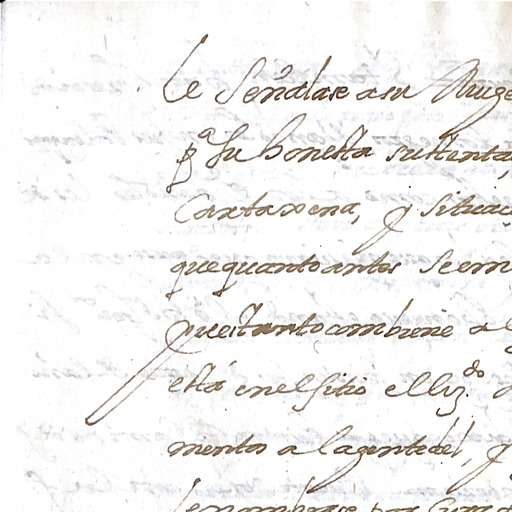 le señalase a su Muge
pª su honesta sustenta
Cartaxena, y situaç
que quanto antes se em
pues tanto combiene a l
está en el sitio el liz.do
mientos a la gente del, y
le nombrase por